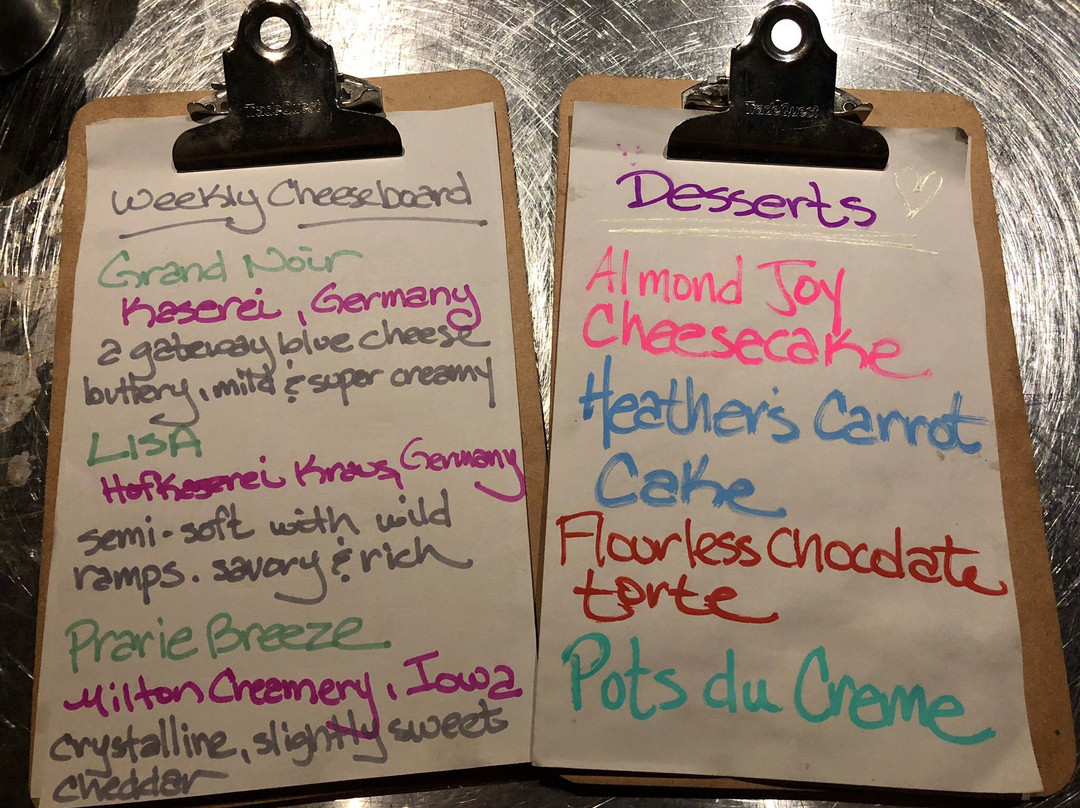 TradeQuest
Weekly Cheeseboard
Grand Noir
Kaserei, Germany
a gateway blue cheese
buttery, mild & super creamy
LISA
Hofkaserei Kraus, Germany
semi-soft with wild
ramps. savory & rich
Prarie Breeze
Milton Creamery, Iowa
crystalline, slightly sweet
cheddar
TradeQuest
Desserts
Almond Joy
Cheesecake
Heather's Carrot
Cake
Flourless Chocolate
torte
Pots du Creme